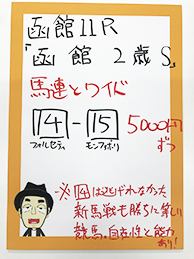 函館11R
『函館2歳S』
馬連とワイド
14-15 5000円
フォルセティ モンファボリ ずつ
※14は逃げれなかった
新馬戦も勝ちに等しい
競馬。自在性と能力
あり!